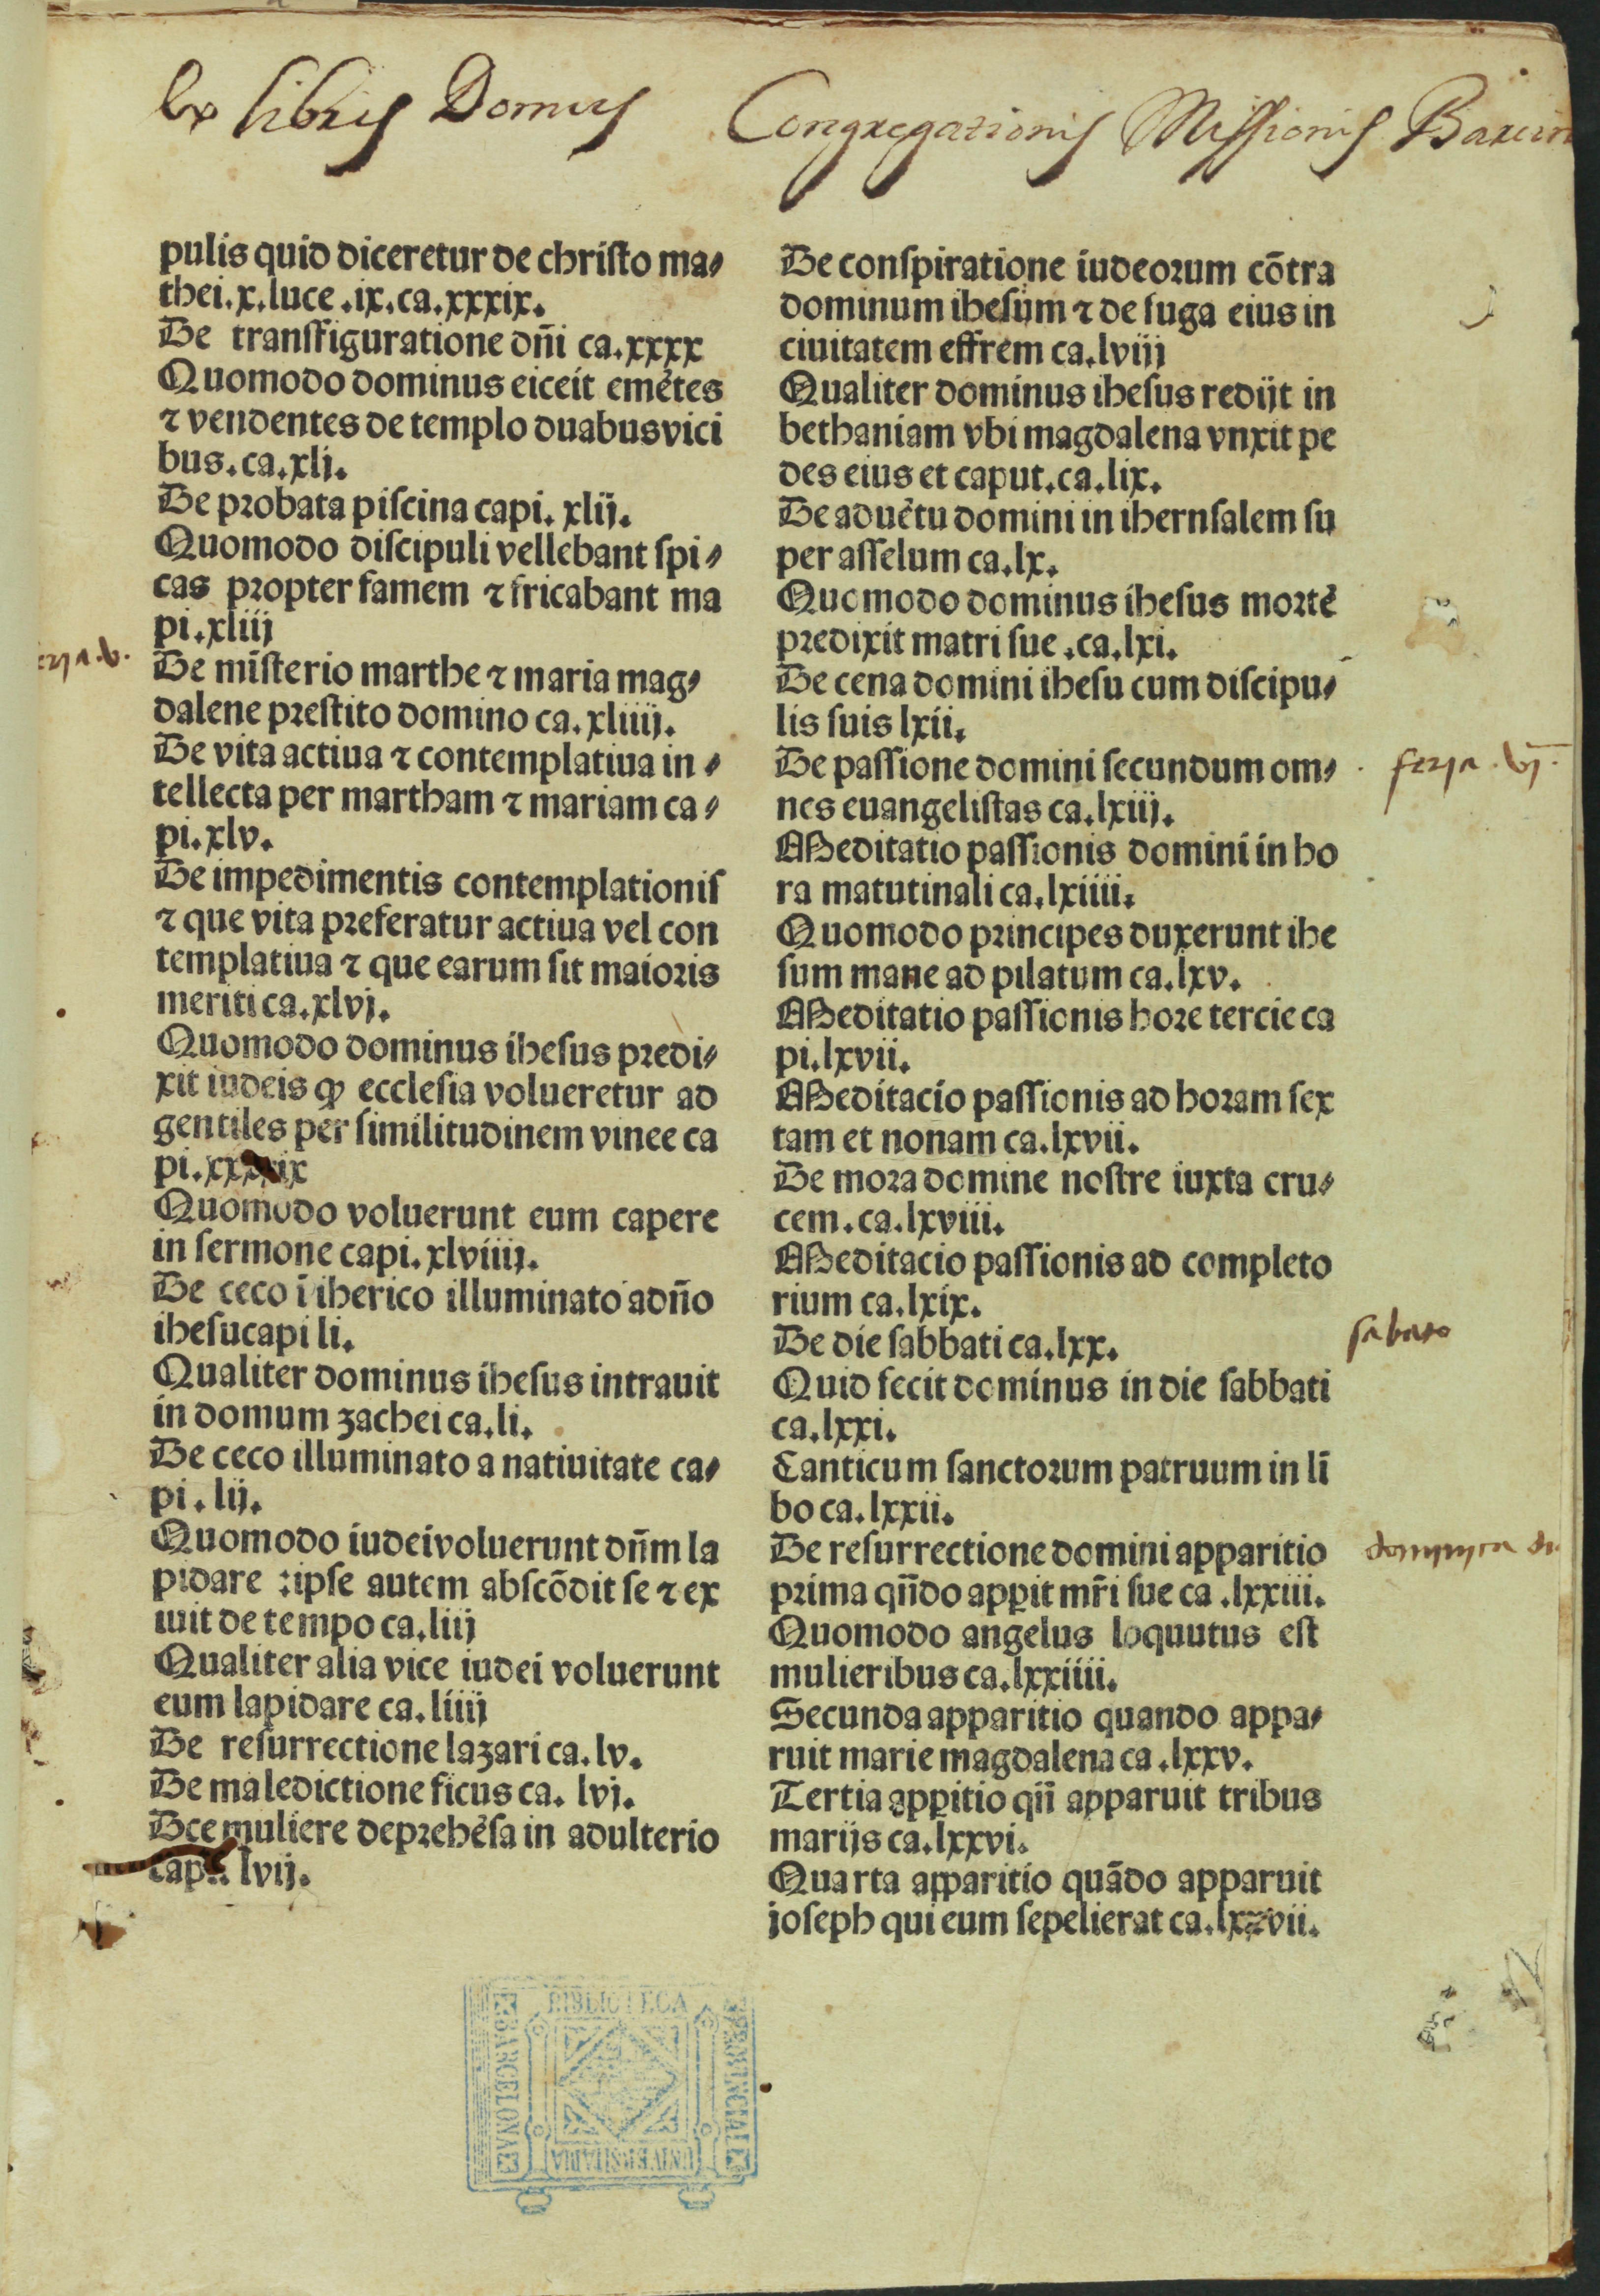 Ex libris Domus Congregationis Missionis Barcin
pulis quid diceretur de chriſto ma⸗
thei.x.luce .ix.ca.xxxix.
De tranſfiguratione dñi ca.xxxx
Quomodo dominus eiceit emẽtes
⁊ vendentes de templo duabusvici
bus.ca.xlj.
De probata piſcina capi. xlij.
Quomodo diſcipuli vellebant ſpi⸗
cas propter famem ⁊ fricabant ma
pi.xliij
eria.v.
De miſterio marthe ⁊ maria mag⸗
dalene preſtito domino ca.xliiij.
De vita actiua ⁊ contemplatiua in⸗
tellecta per martham ⁊ mariam ca⸗
pi.xlv.
De impedimentis contemplationiſ
⁊ que vita preferatur actiua vel con
templatiua ⁊ que earum ſit maioris
meriti ca.xlvj.
Quomodo dominus iheſus predi⸗
xit iudeis ꝙ eccleſia volueretur ad
gentiles per ſimilitudinem vinee ca
pi.
Quomodo voluerunt eum capere
in ſermone capi.xlviiij.
De ceco ĩ iherico illuminato adño
iheſucapi li.
Qualiter dominus iheſus intrauit
in domum zachei ca.li.
De ceco illuminato a natiuitate ca⸗
pi. lij.
Quomodo iudeivoluerunt dñm la
pidare :ipſe autem abſcõdit ſe ⁊ ex
iuit de tempo ca.liij
Qualiter alia vice iudei voluerunt
eum lapidare ca.liiij
De reſurrectione lazari ca.lv.
De maledictione ficus ca. lvj.
Dce muliere deprehẽſa in adulterio
capi. lvij.
De conſpiratione iudeorum cõtra
dominum iheſum ⁊ de fuga eius in
ciuitatem effrem ca.lviij
Qualiter dominus iheſus redijt in
bethaniam vbi magdalena vnxit pe
des eius et caput.ca.lix.
De aduẽtu domini in ihernſalem ſu
per aſſelum ca.lx.
Quomodo dominus iheſus mortẽ
predixit matri ſue .ca.lxi.
De cena domini iheſu cum diſcipu⸗
lis ſuis lxii.
De paſſione domini ſecundum om⸗
feria.vj.
nes euangeliſtas ca.lxiij.
Meditatio paſſionis domini in ho
ra matutinali ca.lxiiii.
Quomodo principes duxerunt ihe
ſum mane ad pilatum ca.lxv.
Meditatio paſſionis hore tercie ca
pi.lxvii.
Meditacio paſſionis ad horam ſex
tam et nonam ca.lxvii.
De mora domine noſtre iuxta cru⸗
cem.ca.lxviii.
Meditacio paſſionis ad completo
rium ca.lxix.
De die ſabbati ca.lxx.
ſabato
Quid fecit dominus in die ſabbati
ca.lxxi.
Canticum ſanctorum patruum in lĩ
bo ca.lxxii.
De reſurrectione domini apparitio
dominica
prima qñdo apꝑit mr̃i ſue ca .lxxiii.
Quomodo angelus loquutus eſt
mulieribus ca.lxxiiii.
Secunda apparitio quando appa⸗
ruit marie magdalena ca .lxxv.
Tertia apꝑitio qñ apparuit tribus
marijs ca.lxxvi.
Quarta apparitio quãdo apparuit
joſeph qui eum ſepelierat ca.lxxvii.
BIBLIOTECA
PROVINCIAL
UNIVERSITARIA
BARCELONA